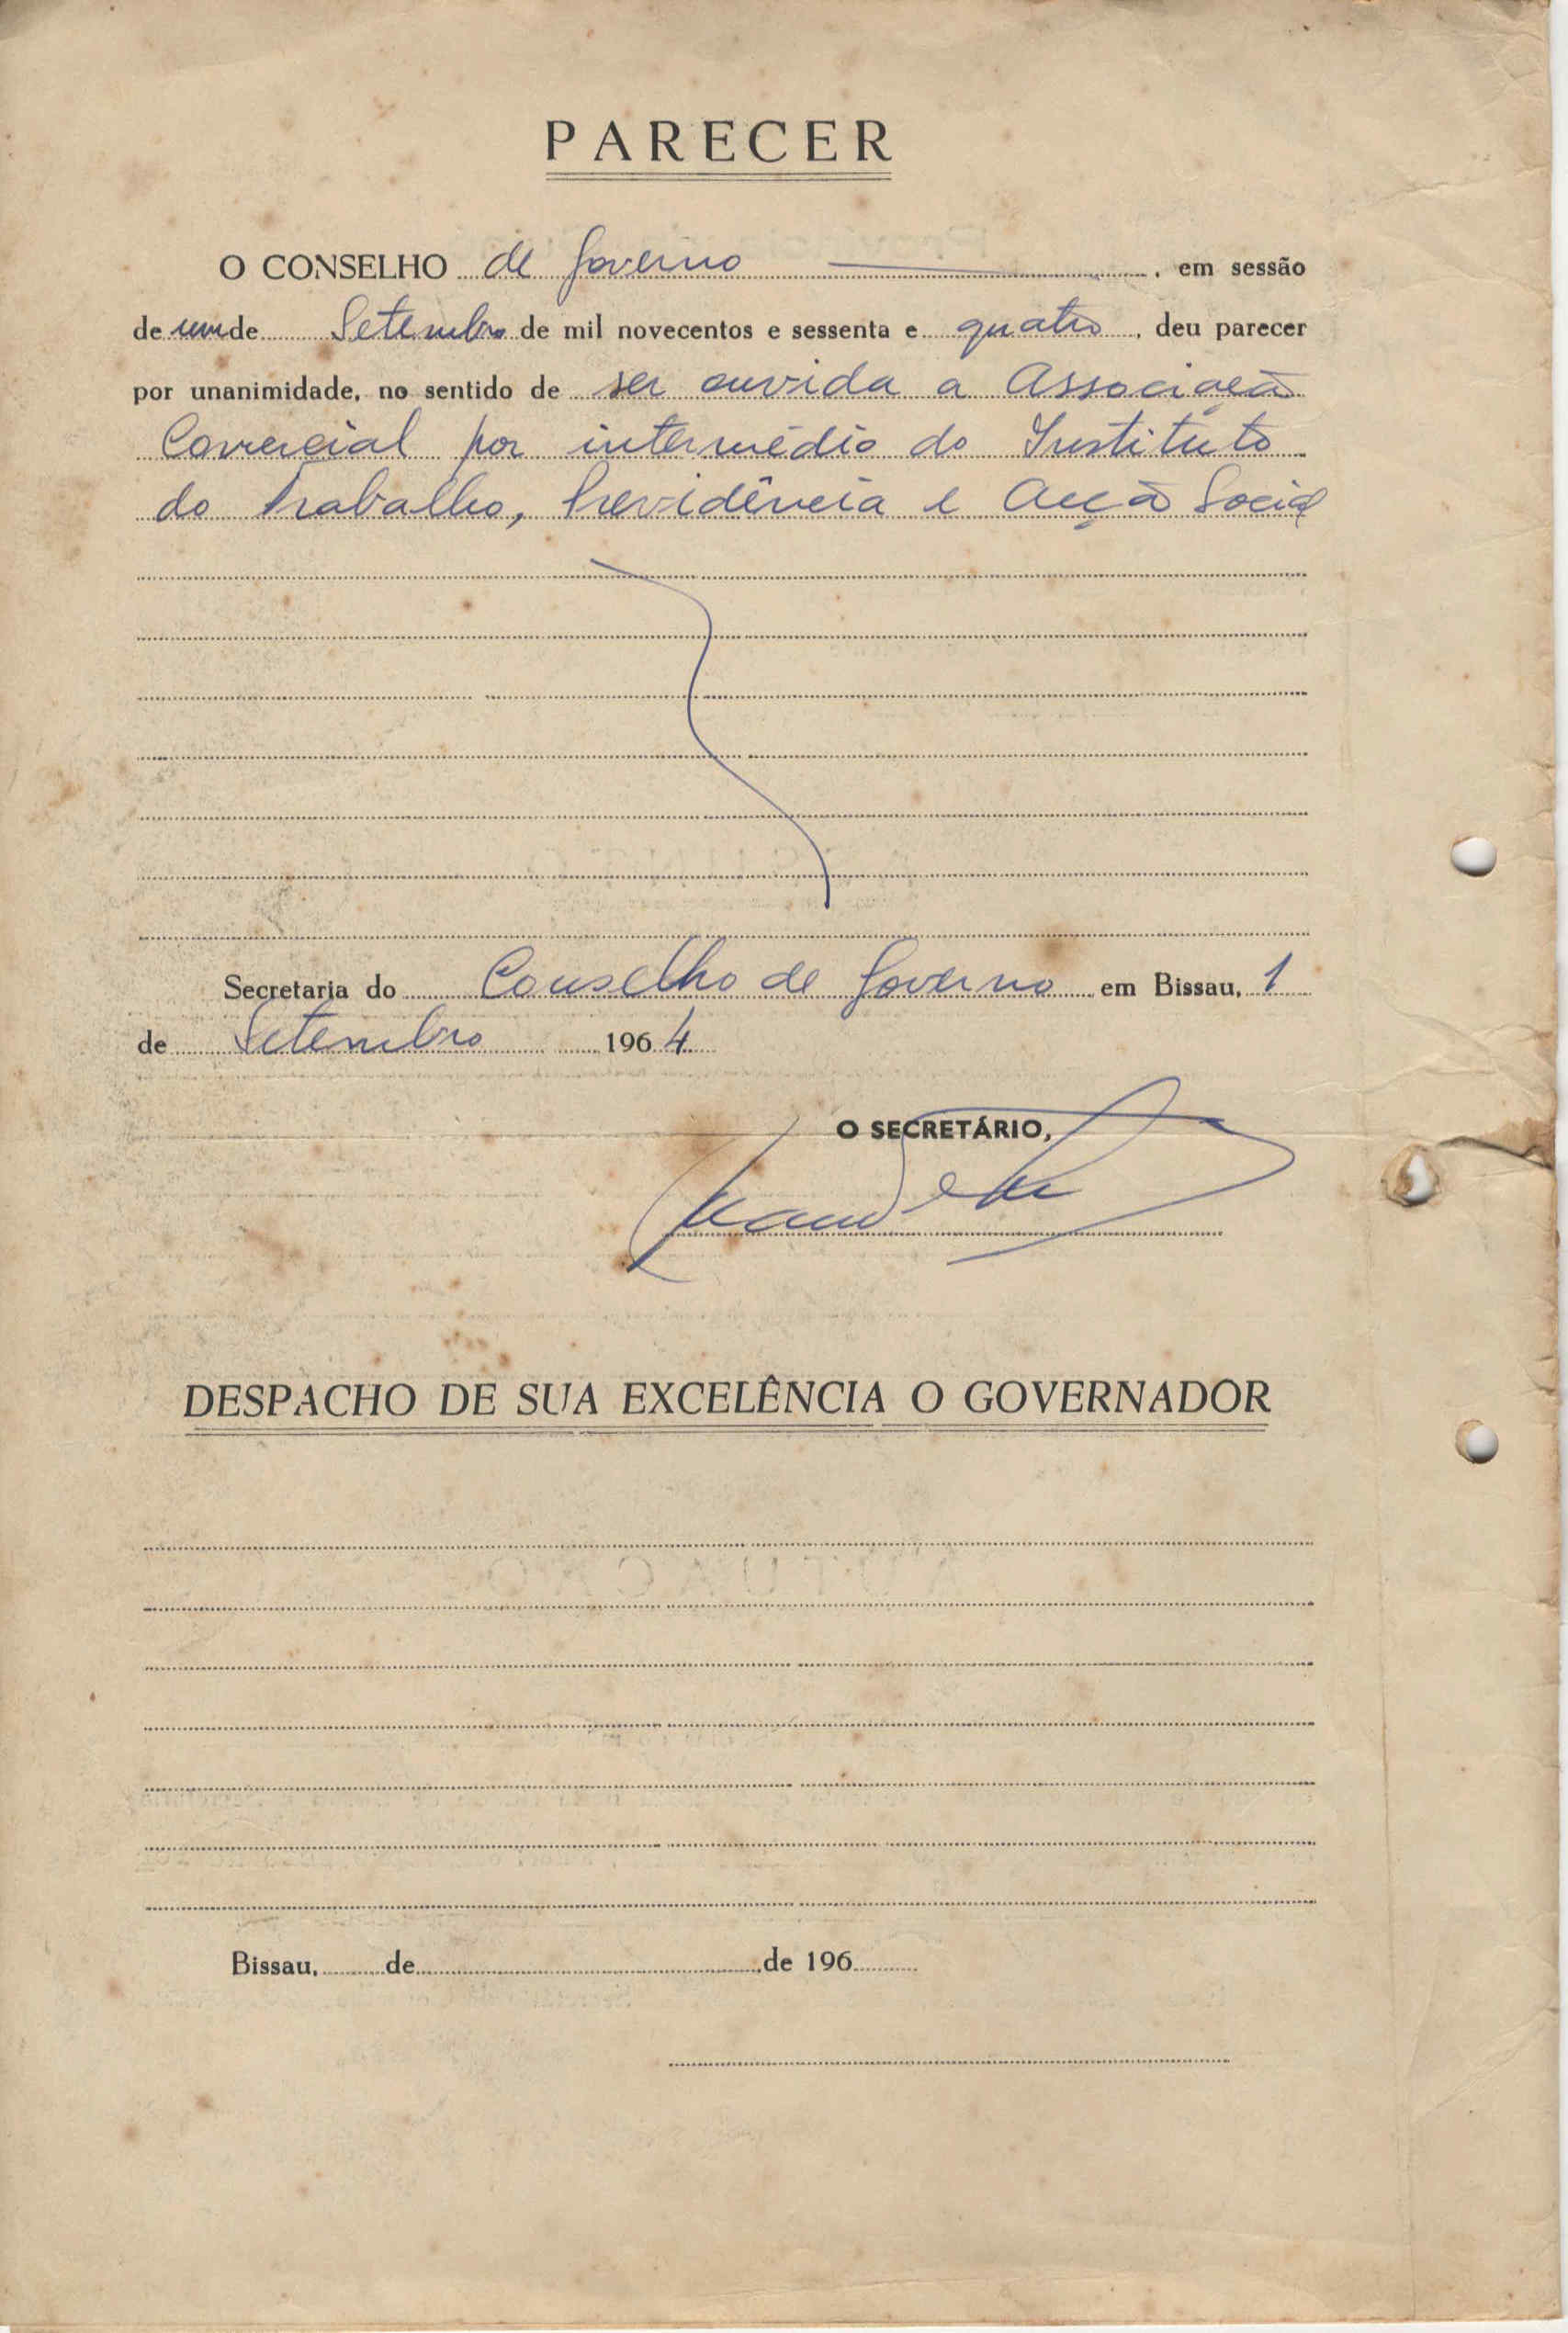 PARECER
O CONSELHO de Governo, em sessão
de um de Setembro de mil novecentos e sessenta e quatro, deu parecer
por unanimidade, no sentido de ser ouvida a Associação
Comercial por intermédio do Instituto
do Trabalho, Previdência e Acção Social
Secretaria do Conselho de Governo em Bissau, 1
de Setembro 1964
O SECRETÁRIO,
DESPACHO DE SUA EXCELÊNCIA O GOVERNADOR
Bissau, de de 196